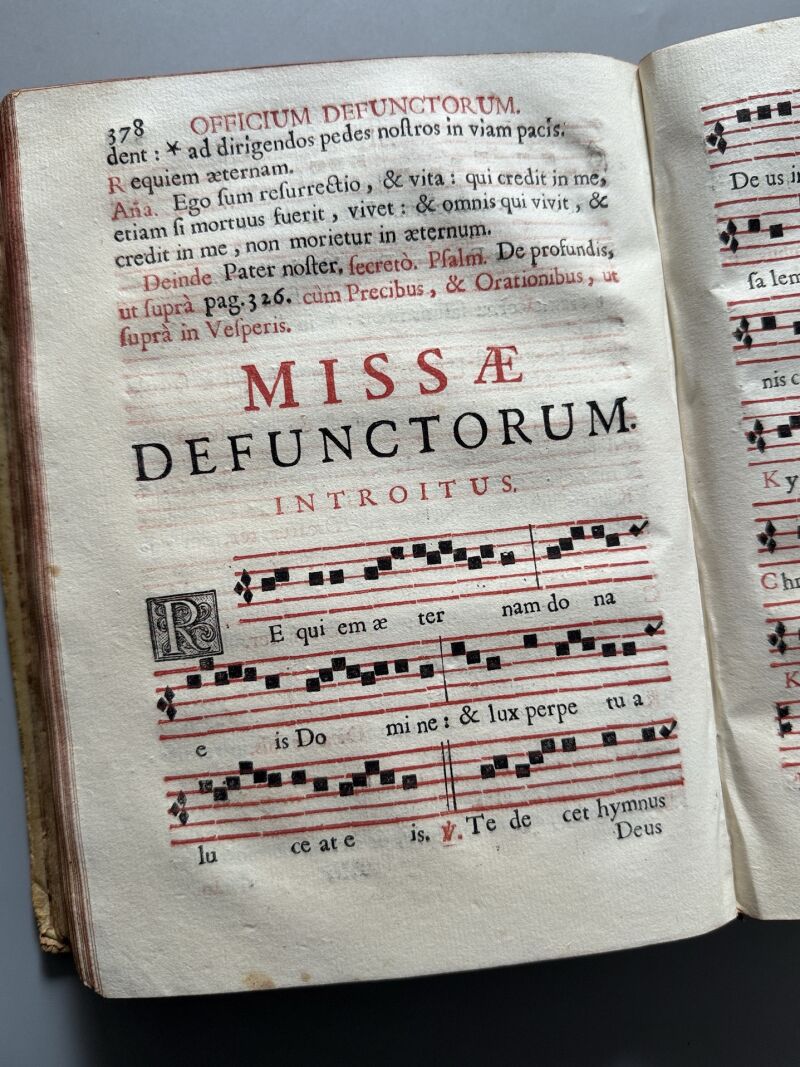 378 OFFICIUM DEFUNCTORUM.
dent : * ad dirigendos pedes noſtros in viam pacis.
R equiem æternam.
Aña. Ego ſum reſurrectio, & vita : qui credit in me,
etiam ſi mortuus fuerit, vivet : & omnis qui vivit, &
credit in me, non morietur in æternum.
Deinde Pater noſter, ſecretò. Pſalm. De profundis,
ut ſuprà pag. 326. cùm Precibus, & Orationibus, ut
ſuprà in Veſperis.
MISSÆ
DEFUNCTORUM.
INTROITUS.
RE qui em æ ter nam do na
e is Do mi ne : & lux perpe tu a
lu ce at e is. ℣. Te de cet hymnus
Deus
De us i
ſa lem
nis c
K y
Chr
K